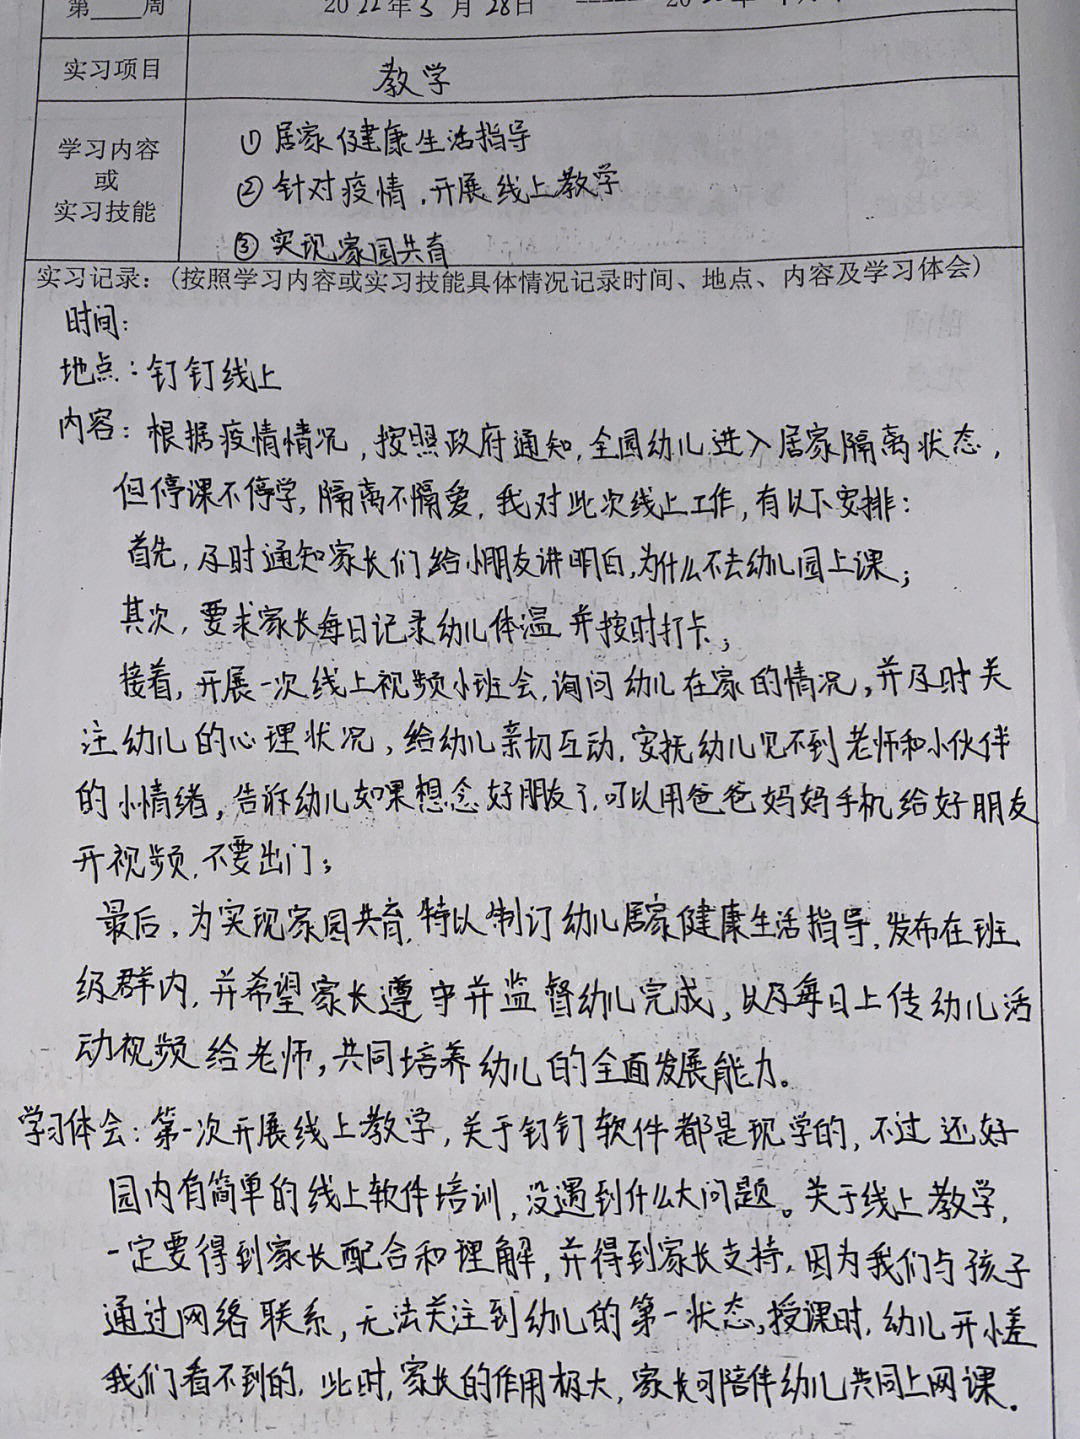 第____周 2022年3月28日 ------ 20
实习项目 教学
学习内容
或
实习技能
① 居家健康生活指导
② 针对疫情,开展线上教学
③ 实现家园共育
实习记录:(按照学习内容或实习技能具体情况记录时间、地点、内容及学习体会)
时间:
地点:钉钉线上
内容:根据疫情情况,按照政府通知,全园幼儿进入居家隔离状态,
但停课不停学,隔离不隔爱,我对此次线上工作,有以下安排:
首先,及时通知家长们给小朋友讲明白,为什么不去幼儿园上课;
其次,要求家长每日记录幼儿体温并按时打卡;
接着,开展一次线上视频小班会,询问幼儿在家的情况,并及时关
注幼儿的心理状况,给幼儿亲切互动,安抚幼儿见不到老师和小伙伴
的小情绪,告诉幼儿如果想念好朋友了,可以用爸爸妈妈手机给好朋友
开视频,不要出门;
最后,为实现家园共育,特以制订幼儿居家健康生活指导,发布在班
级群内,并希望家长遵守并监督幼儿完成,以及每日上传幼儿活
动视频给老师,共同培养幼儿的全面发展能力。
学习体会:第一次开展线上教学,关于钉钉软件都是现学的,不过还好
园内有简单的线上软件培训,没遇到什么大问题。关于线上教学,
一定要得到家长配合和理解,并得到家长支持,因为我们与孩子
通过网络联系,无法关注到幼儿的第一状态,授课时,幼儿开小差
我们看不到的,此时,家长的作用极大,家长可陪伴幼儿共同上网课。